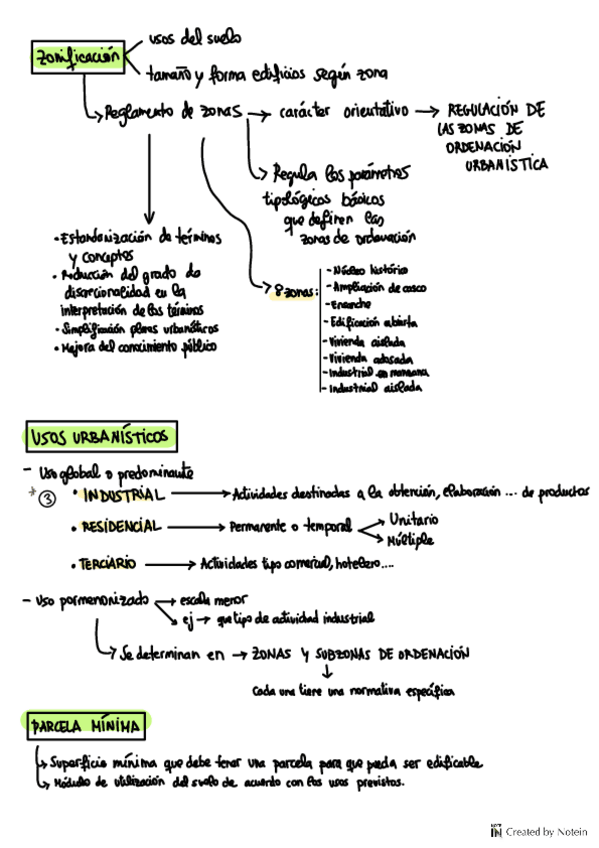 Zonificación
usos del suelo
tamaño y forma edificios según zona
Reglamento de zonas → carácter orientativo → REGULACIÓN DE
LAS ZONAS DE
ORDENACIÓN
URBANÍSTICA
Regula los parámetros
tipológicos básicos
que definen las
zonas de ordenación
• Estandarización de términos
y conceptos
• Reducción del grado de
discrecionalidad en la
interpretación de los términos
• Simplificación planes urbanísticos
• Mejora del conocimiento público
8 zonas:
- Núcleo histórico
- Ampliación de casco
- Ensanche
- Edificación abierta
- Vivienda aislada
- Vivienda adosada
- Industrial en manzana
- Industrial aislada
USOS URBANÍSTICOS
- Uso global o predominante
* ③ • INDUSTRIAL → Actividades destinadas a la obtención, elaboración ... de productos
• RESIDENCIAL → Permanente o temporal
Unitario
Múltiple
• TERCIARIO → Actividades tipo comercial, hotelero....
- Uso pormenorizado → escala menor
ej → que tipo de actividad industrial
Se determinan en → ZONAS Y SUBZONAS DE ORDENACIÓN
Cada una tiene una normativa específica
PARCELA MÍNIMA
Superficie mínima que debe tener una parcela para que pueda ser edificable.
Módulo de utilización del suelo de acuerdo con los usos previstos.
NOTE IN Created by Notein